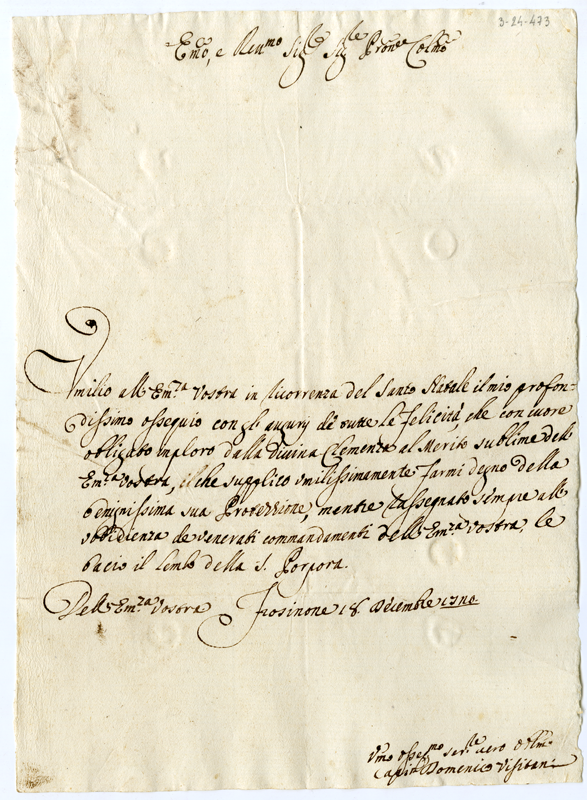 3-24-473
Emo, e Reumo Sige Sige Prone Colmo
Vmilio all' Em.za Vostra in ricorrenza del Santo Natale il mio profon-
dissimo ossequio con gl' augurij de tutte la felicità, che con cuore
obligato imploro dalla Divina Clemenza al Merito sublime dell'
Em.za Vostra, il che supplico vmilissimamente farmi degno della
benignissima sua Protezzione, mentre rassegnato sempre all'
vbbidienza de venerati commandamenti dell' Em.za Vostra, le
bacio il lembo della S. Porpora.
Dell' Em.za Vostra Frosinone 18. Decembre
Vmo osse.mo ser.re vero
Capit. Domenico Visitani